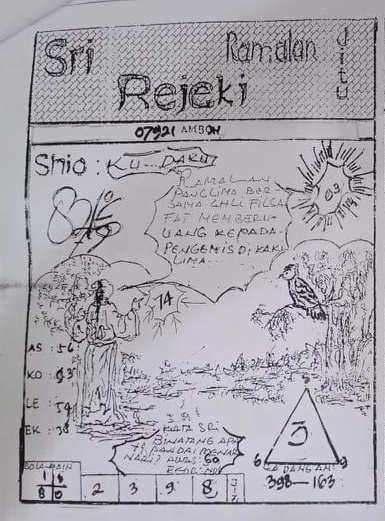 Sri
Ramalan
jitu
Rejeki
07921 AMBON
Shio: KU DAKU
RAMALAN
PANGLIMA BER-
SAMA AHLI FILSA
FAT MEMBERI
UANG KEPADA
PENGEMIS DI KAKI
LIMA...
03
74
AS : 56
KO : 93
LE : 54
EK : 38
KATA SRI
BINATANG APA
YG PANDAI MENARI
NARI? AWAS: 60
5
3
6 9
KADANGAN:
398-163
BOLA-MAIN
1 6
8 0
2 3 9 8 jitu